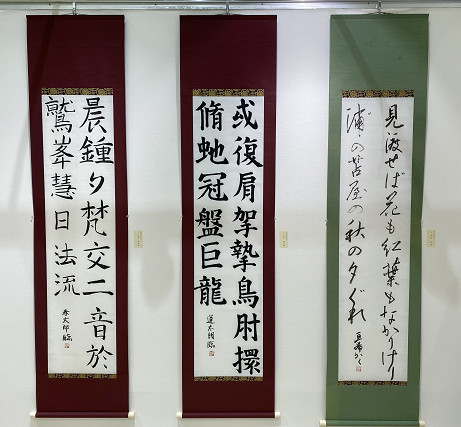 見渡せば花も紅葉もなかりけり
浦の苫屋の秋の夕ぐれ
或復肩挐摯鳥肘擐
脩虵冠盤巨龍
晨鍾夕梵交二音於
鷲峯慧日法流